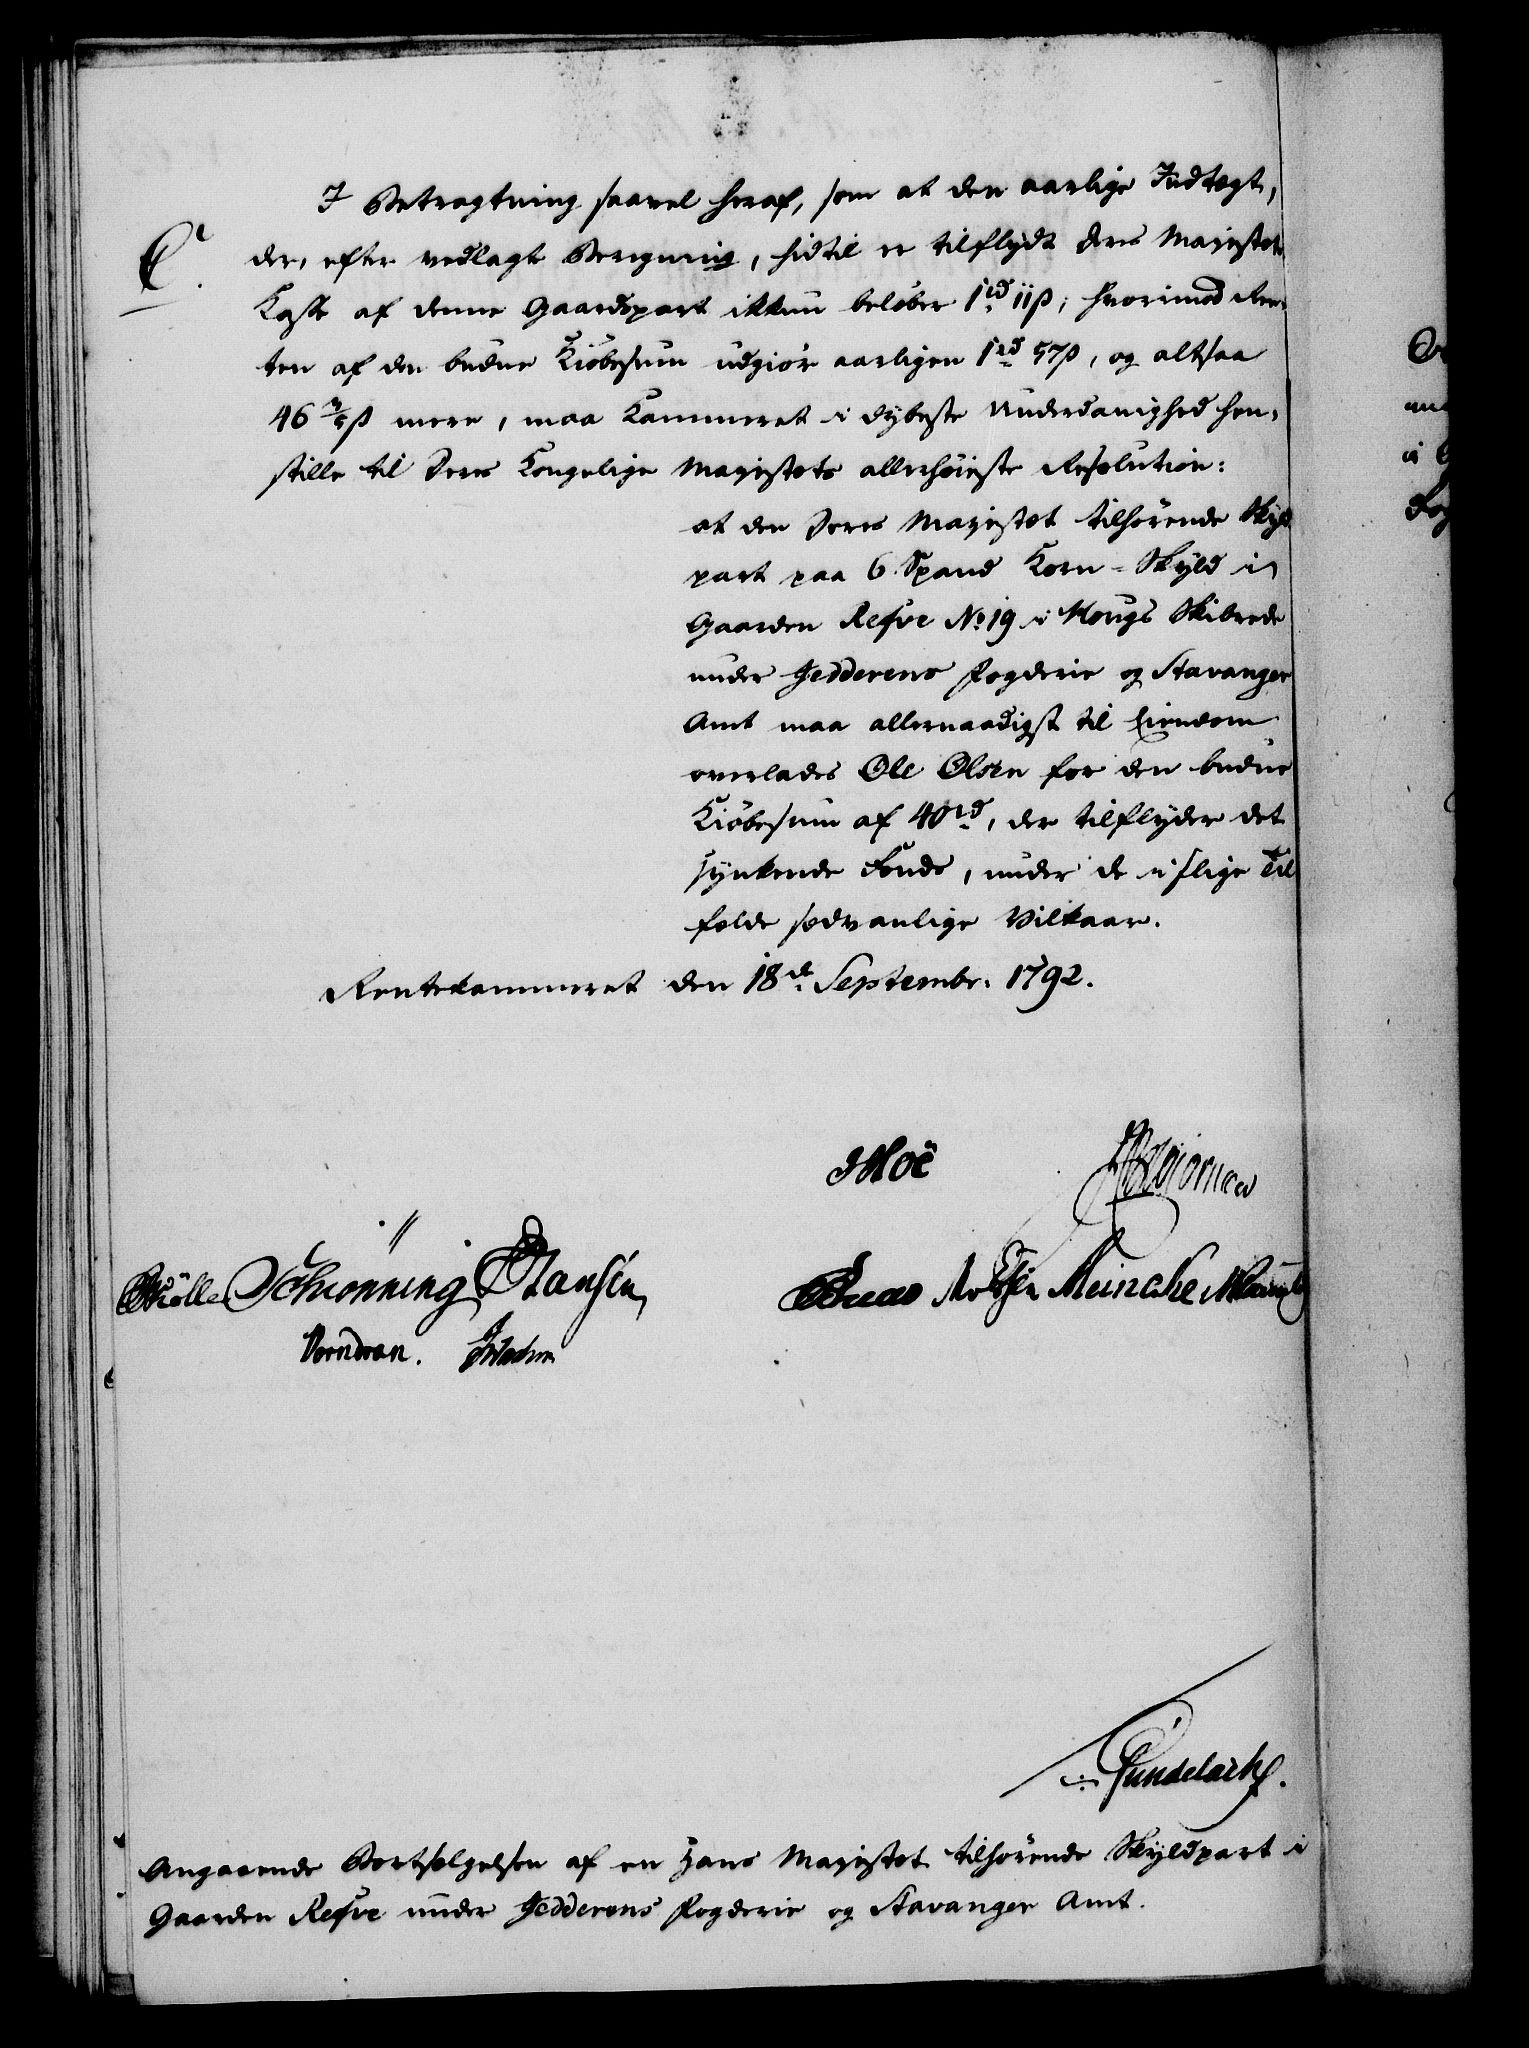 I Betragtning saavel heraf, som at den aarlige Indtægt,
C.
der, efter vedlagte Beregning, hidtil er tilflydt Deres Majestæts
Kasse af denne Gaardspart ikkun beløber 1rd 11ß, hvorimod Ren-
ten af den budne Kiøbesum udgiør aarligen 1rd 57ß, og altsaa
46 ß mere, maa Kammeret i dybeste Underdanighed hen-
stille til Deres Kongelige Majestæts allerhøieste Resolution:
at den Deres Majestæt tilhørende Skyld
part paa 6 Spand Korn-Skyld i
Gaarden Refve No 19 i Hougs Skibrede
under Jedderens Fogderie og Stavanger
Amt maa allernaadigst til Eiendom
overlades Ole Olsen for den budne
Kiøbesum af 40rd, der tilflyder det
synkende Fonds, under de i slige Til
fælde sædvanlige Vilkaar.
Rentekammeret den 18de Septembr. 1792.
Hoë
Møller Schiønning Hansen
Meincke
Wormdran.
Angaaende Bortsælgelsen af en Hans Majestæt tilhørende Skyldpart i
Gaarden Refve under Jedderens Fogderie og Stavanger Amt.